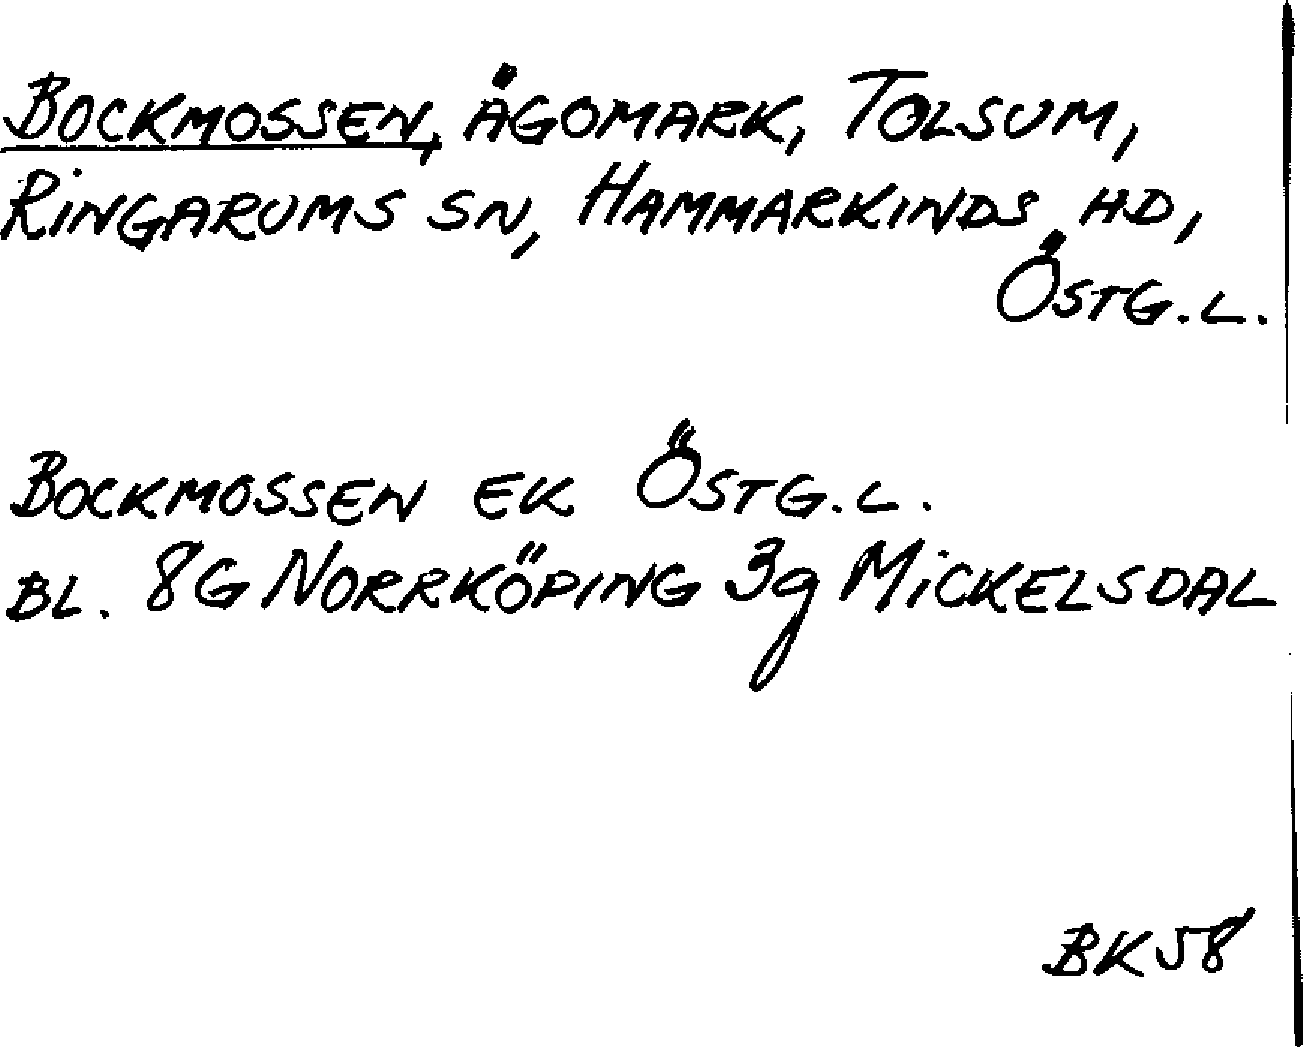 BOCKMOSSEN, ÄGOMARK, TOLSUM,
RINGARUMS SN, HAMMARKINDS HD,
ÖSTG.L.
BOCKMOSSEN EK ÖSTG.L.
BL. 8G NORRKÖPING 3g MICKELSDAL
BK58